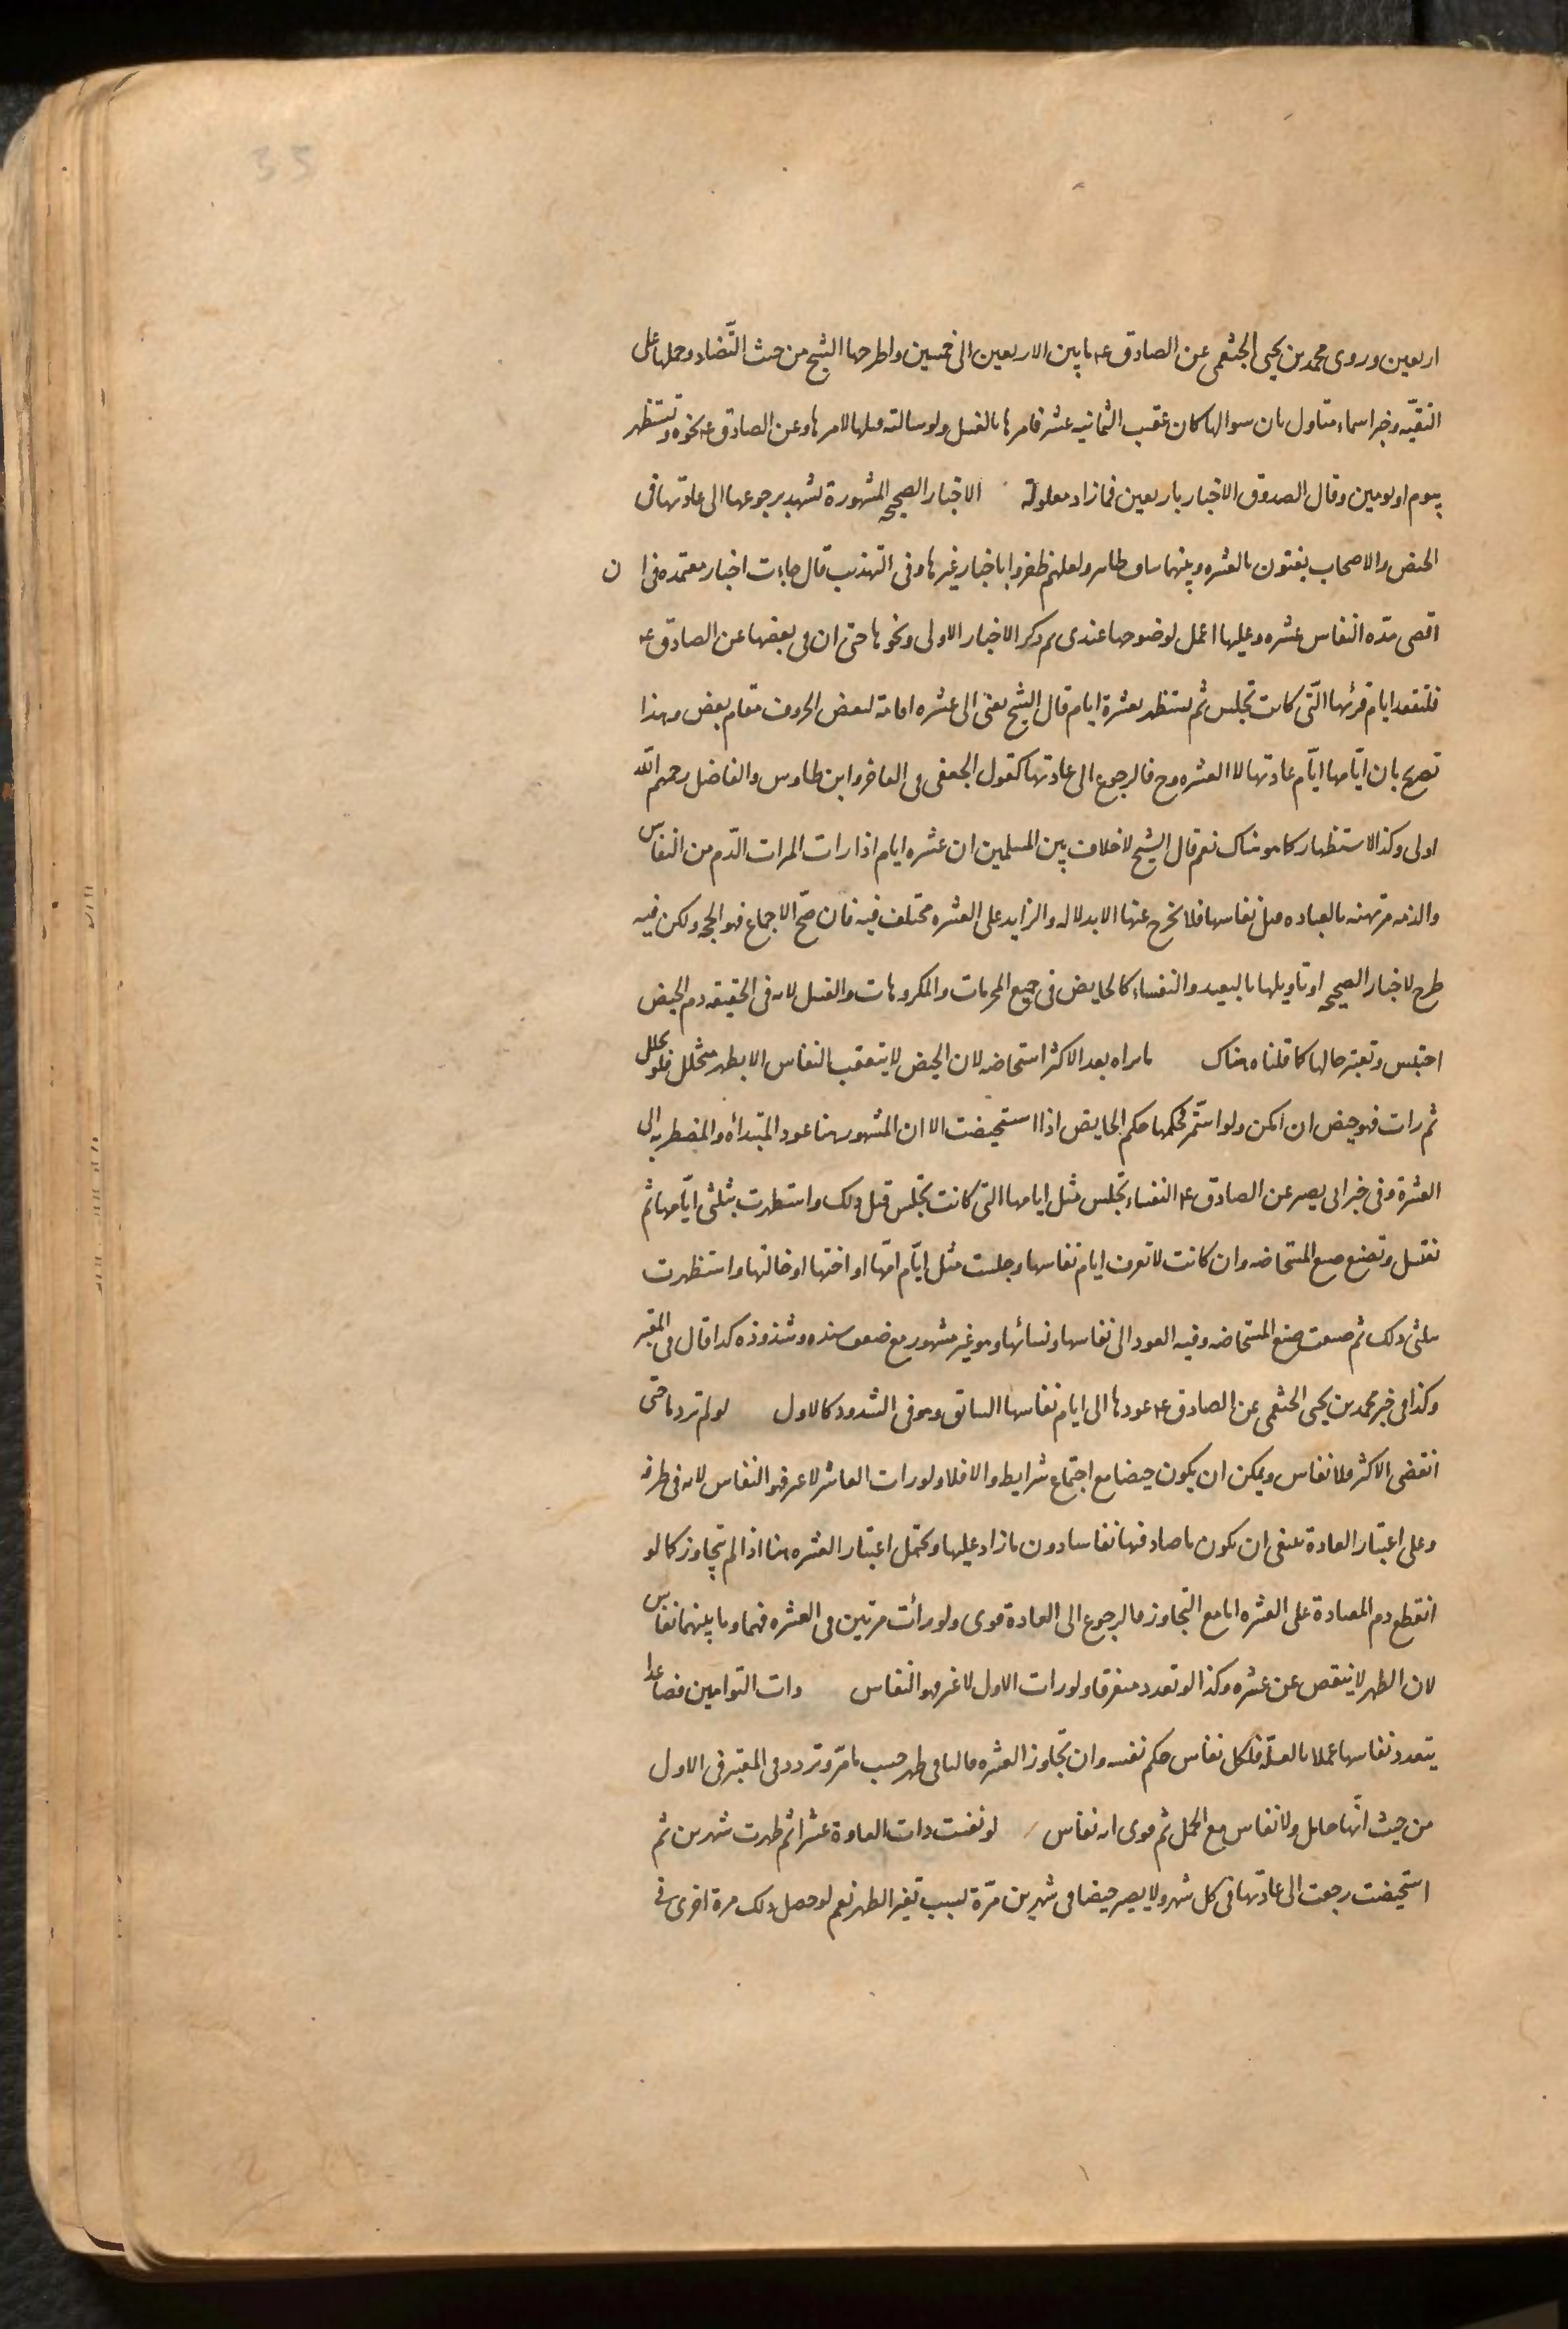 35
اربعين وروى محمد بن يحيى الخثعمى عن الصادق ع ما بين الاربعين الى خمسين واطرحها الشيخ من حيث التّضاد وحملها على
التقيّه وخبر اسماء متاول بان سوالها كان عقيب الثمانيه عشر فامرها بالغسل ولو سالته قبلها لامرها وعن الصادق ع نحوه وتستظهر
بيوم او يومين وقال الصدوق الاخبار باربعين فما زاد معلولة الاخبار الصحيحه المشهورة تشهد برجوعها الى عادتها فى
الحيض والاصحاب يفتون بالعشره وبينهما تناف ظاهر ولعلهم ظفروا باخبار غيرها وفى التهذيب قال جاءت اخبار معتمده فى ا ن
اقصى مدّه النفاس عشره وعليها اعمل لوضوحها عندى ثم ذكر الاخبار الاولى ونحوها حتى ان فى بعضها عن الصادق ع
فلتقعد ايام قرئها الّتى كانت تجلس ثم تستظهر بعشرة ايام قال الشيخ يعنى الى عشره اقامة لبعض الحروف مقام بعض وهذا
تصريح بان ايّامها ايّام عادتها لا العشره وح فالرجوع الى عادتها كقول الجعفى فى الفاخر وابن طاوس والفاضل رحمهم الله
اولى وكذا الاستظهار كما هو هناك نعم قال الشيخ لا خلاف بين المسلمين ان عشره ايام اذا رات المراة الدّم من النفاس
والذمه مرتهنه بالعباده قبل نفاسها فلا يخرج عنها الا بدلاله والزايد على العشره مختلف فيه فان صحّ الاجماع فهو الحجه ولكن فيه
طرح لاخبار الصحيحه او تاويلها بالبعيد والنفساء كالحايض فى جميع المحرمات والمكروهات والغسل لانه فى الحقيقه دم الحيض
احتبس وتعتبر حالها كما قلناه هناك ما تراه بعد الاكثر استحاضه لان الحيض لا يتعقب النفاس الا بطهر متخلل فلو تخلل
ثم رات فهو حيض ان امكن ولو استمّر فحكمها حكم الحايض اذا استحيضت الا ان المشهور هنا عود المبتدأه والمضطربه الى
العشرة وفى خبر ابى بصير عن الصادق ع النفساء تجلس مثل ايامها التى كانت تجلس قبل ذلك واستظهرت بثلثى ايّامها ثم
تغتسل وتصنع صنع المستحاضه وان كانت لا تعرف ايام نفاسها وجلست مثل ايّام امّها او اختها او خالتها واستظهرت
بثلثى ذلك ثم صنعت صنع المستحاضه وفيه العود الى نفاسها ونسائها وهو غير مشهور مع ضعف سنده وشذوذه كذا قال فى المعتبر
وكذا فى خبر محمد بن يحيى الخثعمى عن الصادق ع عودها الى ايام نفاسها السابق وهو فى الشذوذ كالاول لو لم تر دما حتى
انقضى الاكثر فلا نفاس ويمكن ان يكون حيضا مع اجتماع شرايط والا فلا ولو رات العاشر لا غير فهو النفاس لانه فى طرفه
وعلى اعتبار العادة ينبغى ان يكون ما صادفها نفاسا دون ما زاد عليها ويحتمل اعتبار العشره هنا اذا لم يتجاوز كما لو
انقطع دم المعتادة على العشره اما مع التجاوز فالرجوع الى العادة قوى ولو رأت مرتين فى العشره فهما وما بينهما نفاس
لان الطهر لا ينقص عن عشره وكذا لو تعدد متفرقا ولو رات الاول لا غير فهو النفاس ذات التوامين فصاعدا
يتعدد نفاسها عملا بالعلّه فلكل نفاس حكم نفسه وان تجاوز العشره فالباقى طهر حسب ما مرّ وتردد فى المعتبر فى الاول
من حيث انّها حامل ولا نفاس مع الحمل ثم قوى انه نفاس لو نفست ذات العادة عشرا ثم طهرت شهرين ثم
استحيضت رجعت الى عادتها فى كل شهر ولا يصير حيضا فى شهرين مرّة بسبب تغير الطهر نعم لو حصل ذلك مرة اخرى فى